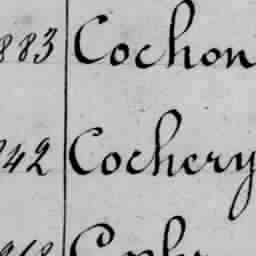 883 Cochon
242 Cochery